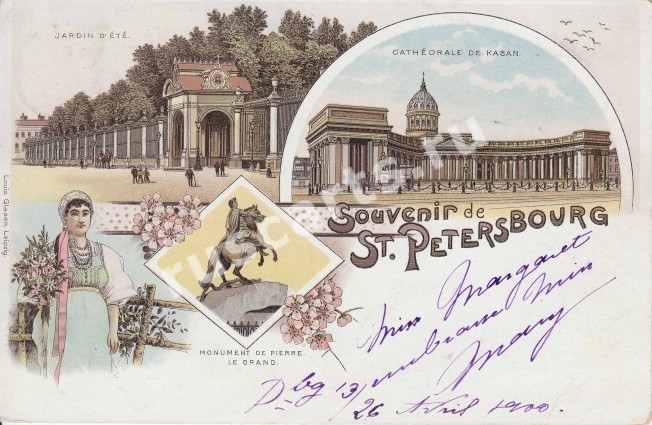 JARDIN D'ÉTÉ.
CATHÉDRALE DE KASAN.
Louis Glaser, Leipzig.
Souvenir de
ST. PETERSBOURG
MONUMENT DE PIERRE
LE GRAND.
Miss Margaret
Mary
13/26 Avril 1900.
rus-cards.ru